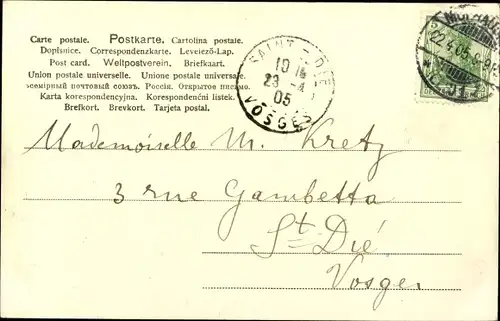 Carte postale. Postkarte. Cartolina postale.
Dopisnice. Correspondenzkarte. Levelező-Lap.
Post card. Weltpostverein. Briefkaart.
Union postale universelle. Unione postale universale.
всемірный почтовый союзъ. Россія. Открытое письмо.
Karta korespondencyjna. Korespondenční listek.
Brefkort. Brevkort. Tarjeta postal.
SAINT-DIÉ
23 -4
05
VOSGES
22.4.05
Mademoiselle M. Kretz
3 rue Gambetta
St Dié
Vosges